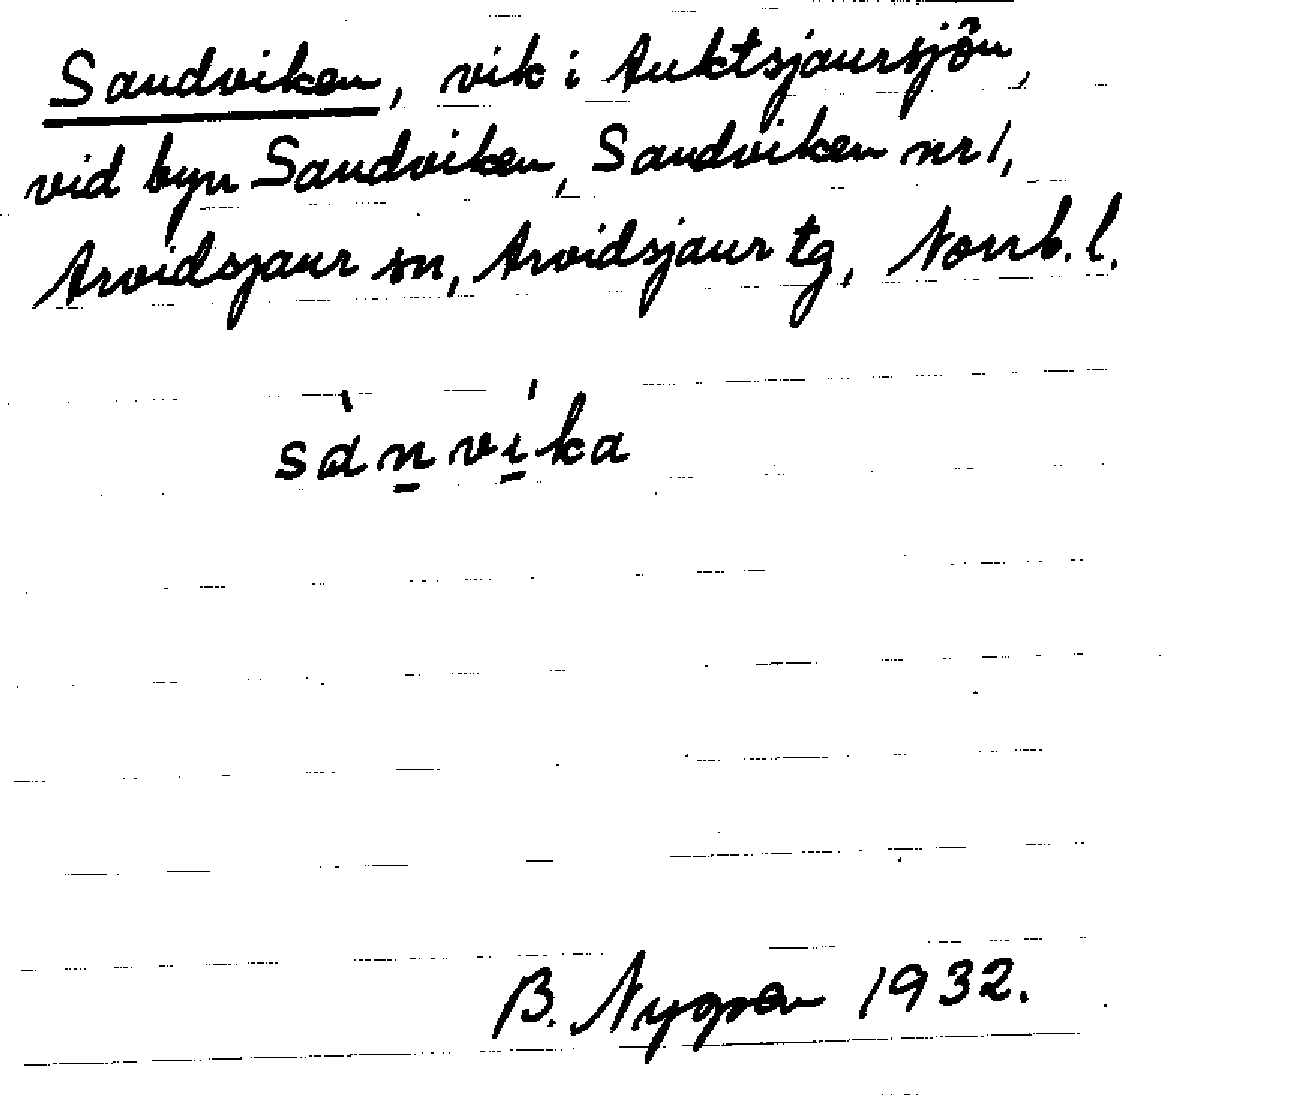 Sandviken, vik i Auktsjaursjön,
vid byn Sandviken, Sandviken nr 1,
Arvidsjaur sn, Arvidsjaur tg, Norrb. l.
sàn̲ví̲ka
B. Nygren 1932.